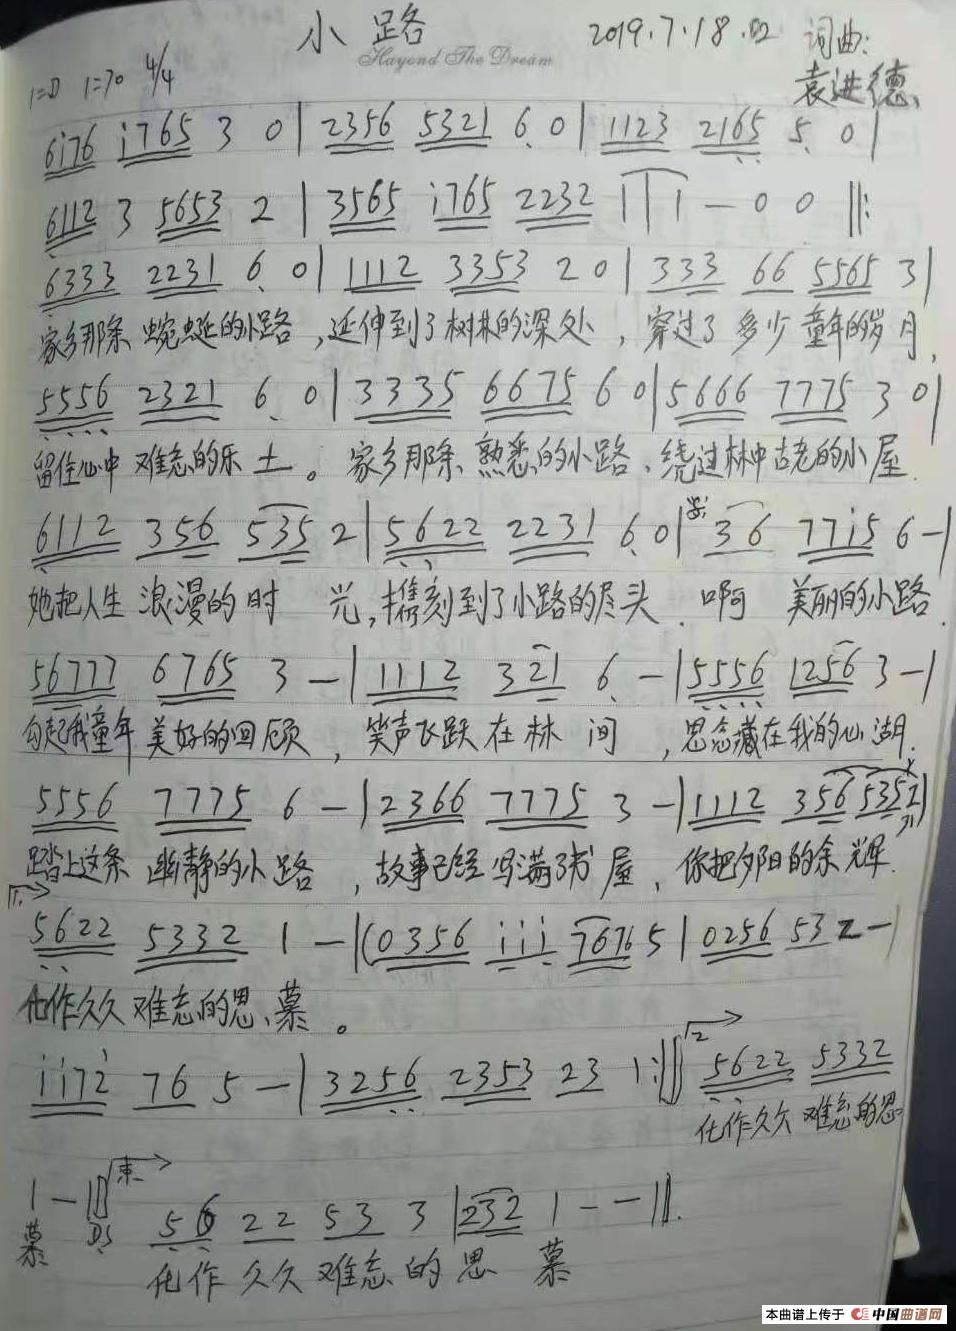 小路
Hayond The Dream
2019.7.18.02 词曲:
袁进德
1=D 1=70 4/4
6i76 i765 3 0 | 2356 5321 6 0 | 1123 2165 5 0 |
6112 3 5653 2 | 3565 i765 2232 1 | 1 — 0 0 ‖:
6333 2231 6 0 | 1112 3353 2 0 | 333 66 5565 3 |
家乡那条 蜿蜒的小路,延伸到了树林的深处,穿过了多少童年的岁月,
5556 2321 6 0 | 3335 6675 6 0 | 5666 7775 3 0 |
留住心中 难忘的乐土。家乡那条 熟悉的小路、绕过林中古老的小屋.
6112 356 535 2 | 5622 2231 6 0 | 36 77i5 6 — |
她把人生 浪漫的时 光,携刻到了小路的尽头. 啊 美丽的小路.
56777 6765 3 — | 1112 321 6 — | 5556 1256 3 — |
勾起我童年 美好的回顾,笑声飞跃在林间,思念藏在我的心湖.
5556 7775 6 — | 2366 7775 3 — | 1112 356 5352 |
踏上这条 幽静的小路,故事已经写满了书屋,你把夕阳的余辉.
1.
5622 5332 1 — | (0356 iii 7676 5 | 0256 53 2 — )
化作久久 难忘的思慕。
ii72 76 5 — | 3256 2353 23 1 :‖ 2 5622 5332
化作久久 难忘的思
1 — ‖ 束 56 22 53 3 | 232 1 — — ‖.
慕 DS 化作 久久 难忘的思 慕
本曲谱上传于 中国曲谱网